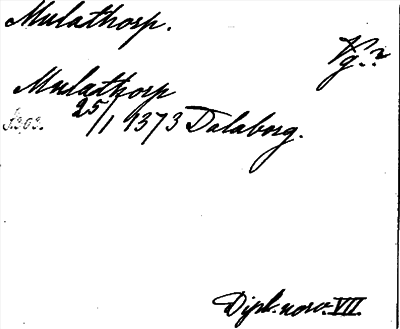 Mulathorp.
Vg.?
Mulathorp
25/1 1373 Dalaborg.
Dipl. norv. VII.